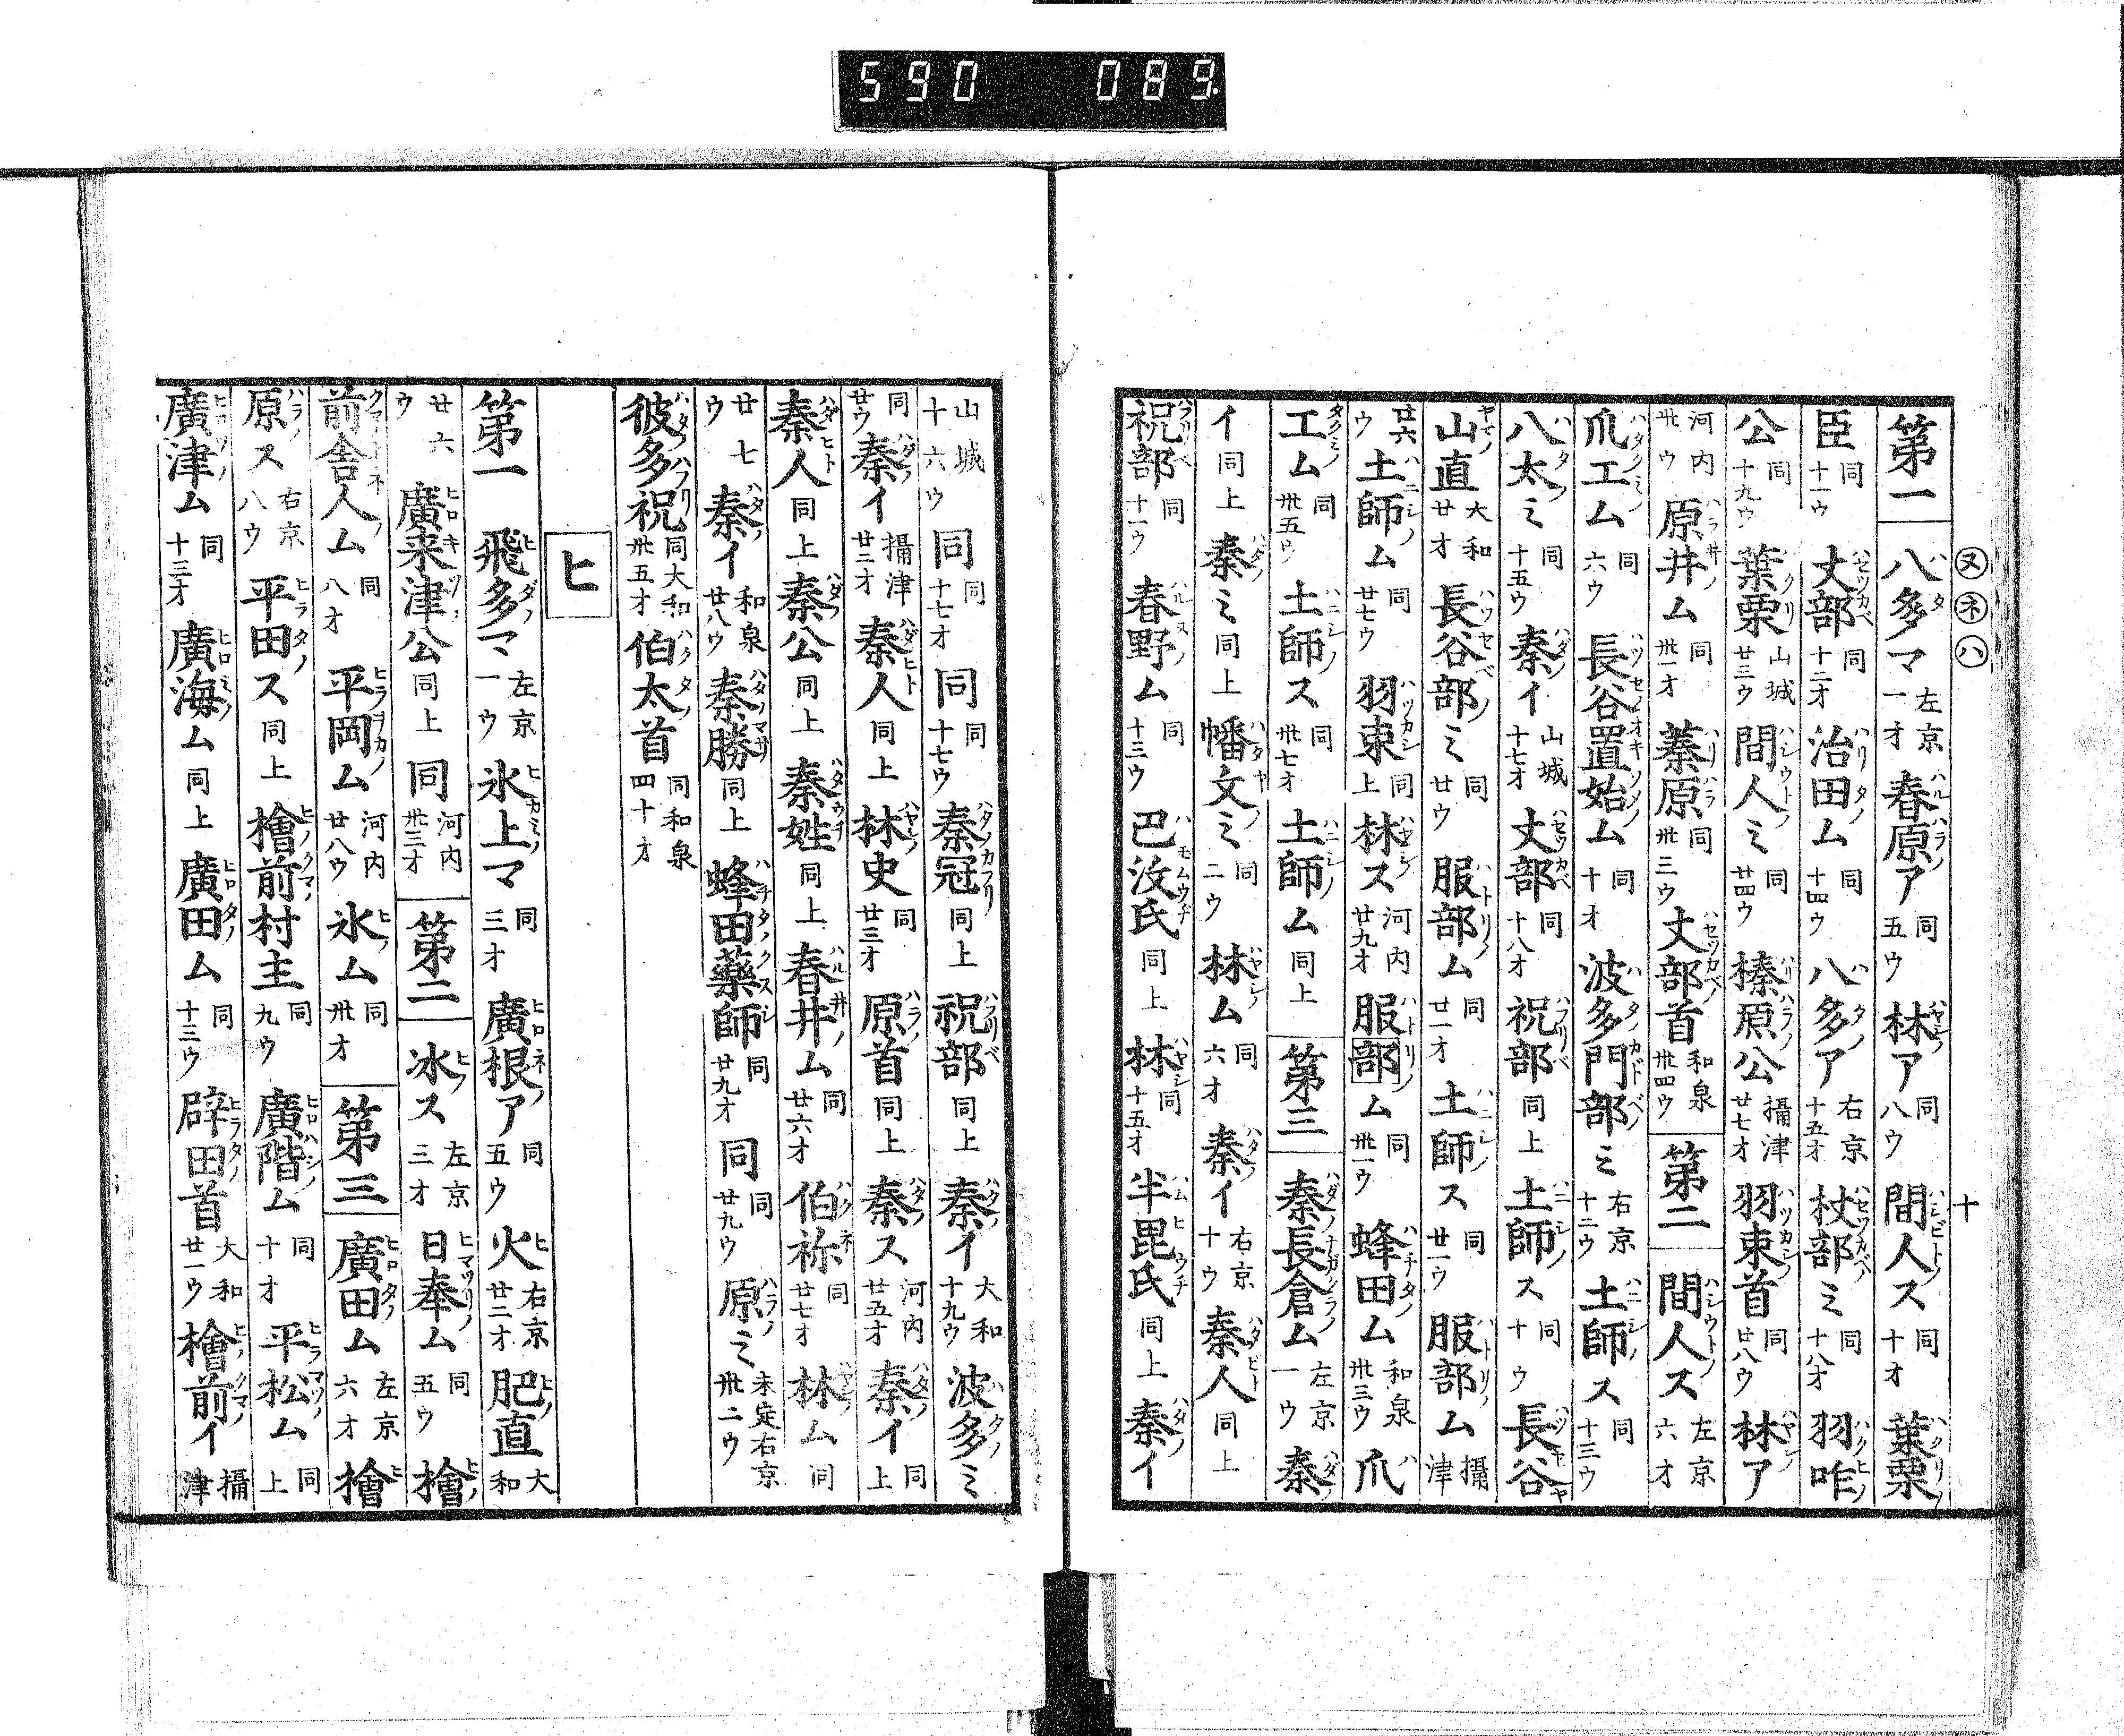 590 089.
ヌネハ 十
第一 八多マ 左京一オ 春原ア 同五ウ 林ア 同八ウ 間人ス 同十オ 葉栗
臣 同十一ウ 丈部 同十二オ 治田ム 同十四ウ 八多ア 右京十五オ 杖部ミ 同十八オ 羽咋
公 同十九ウ 葉栗 山城廿三ウ 間人ミ 同廿四ウ 榛原公 攝津廿七オ 羽束首 同廿八ウ 林ア
河内卅ウ 原井ム 同卅一オ 蓁原 同卅三ウ 丈部首 和泉卅四ウ 第二 間人ス 左京六オ
爪工ム 同六ウ 長谷置始ム 同十オ 波多門部ミ 右京十二ウ 土師ス 同十三ウ
八太ミ 同十五ウ 秦イ 山城十七オ 丈部 同十八オ 祝部 同上 土師ス 同十ウ 長谷
山直 大和廿オ 長谷部ミ 同廿ウ 服部ム 同廿一オ 土師ス 同廿一ウ 服部ム 攝津
廿六ウ 土師ム 同廿七ウ 羽束 同上 林ス 河内廿九オ 服部ム 同卅一ウ 蜂田ム 和泉卅三ウ 爪
工ム 同卅五ウ 土師ス 同卅七オ 土師ム 同上 第三 秦長倉ム 左京一ウ 秦
イ 同上 秦ミ 同上 幡文ミ 同二ウ 林ム 同六オ 秦イ 右京十ウ 秦人 同上
祝部 同十一ウ 春野ム 同十三ウ 巴汶氏 同上 林 同十五オ 半毘氏 同上 秦イ
山城十六ウ 同 同十七オ 同 同十七ウ 秦冠 同上 祝部 同上 秦イ 大和十九ウ 波多ミ
同廿ウ 秦イ 攝津廿二オ 秦人 同上 林史 同廿三オ 原首 同上 秦ス 河内廿五オ 秦イ 同上
秦人 同上 秦公 同上 秦姓 同上 春井ム 同廿六オ 伯祢 同廿七オ 林ム 同
廿七ウ 秦イ 和泉廿八ウ 秦勝 同上 蜂田藥師 同廿九オ 同 同廿九ウ 原ミ 未定右京卅二ウ
彼多祝 同大和卅五オ 伯太首 同和泉四十オ
ヒ
第一 飛多マ 左京一ウ 氷上マ 同三オ 廣根ア 同五ウ 火 右京廿二オ 肥直 大和
廿六ウ 廣来津公 同上 同 河内卅三オ 第二 氷ス 左京三オ 日奉ム 同五ウ 檜
前舎人ム 同八オ 平岡ム 河内廿八ウ 氷ム 同卅オ 第三 廣田ム 左京六オ 檜
原ス 右京八ウ 平田ス 同上 檜前村主 同九ウ 廣階ム 同十オ 平松ム 同上
廣津ム 同十三オ 廣海ム 同上 廣田ム 同十三ウ 辟田首 大和廿一ウ 檜前イ 攝津